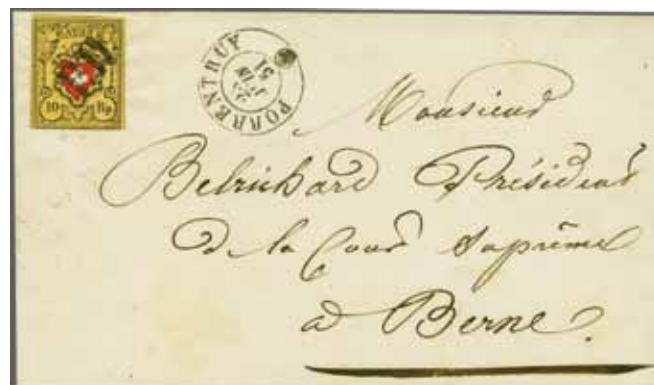 10 Rp
PORRENTRUY
51
Monsieur
Belrichard Président
de la Cour Suprême
à Berne.